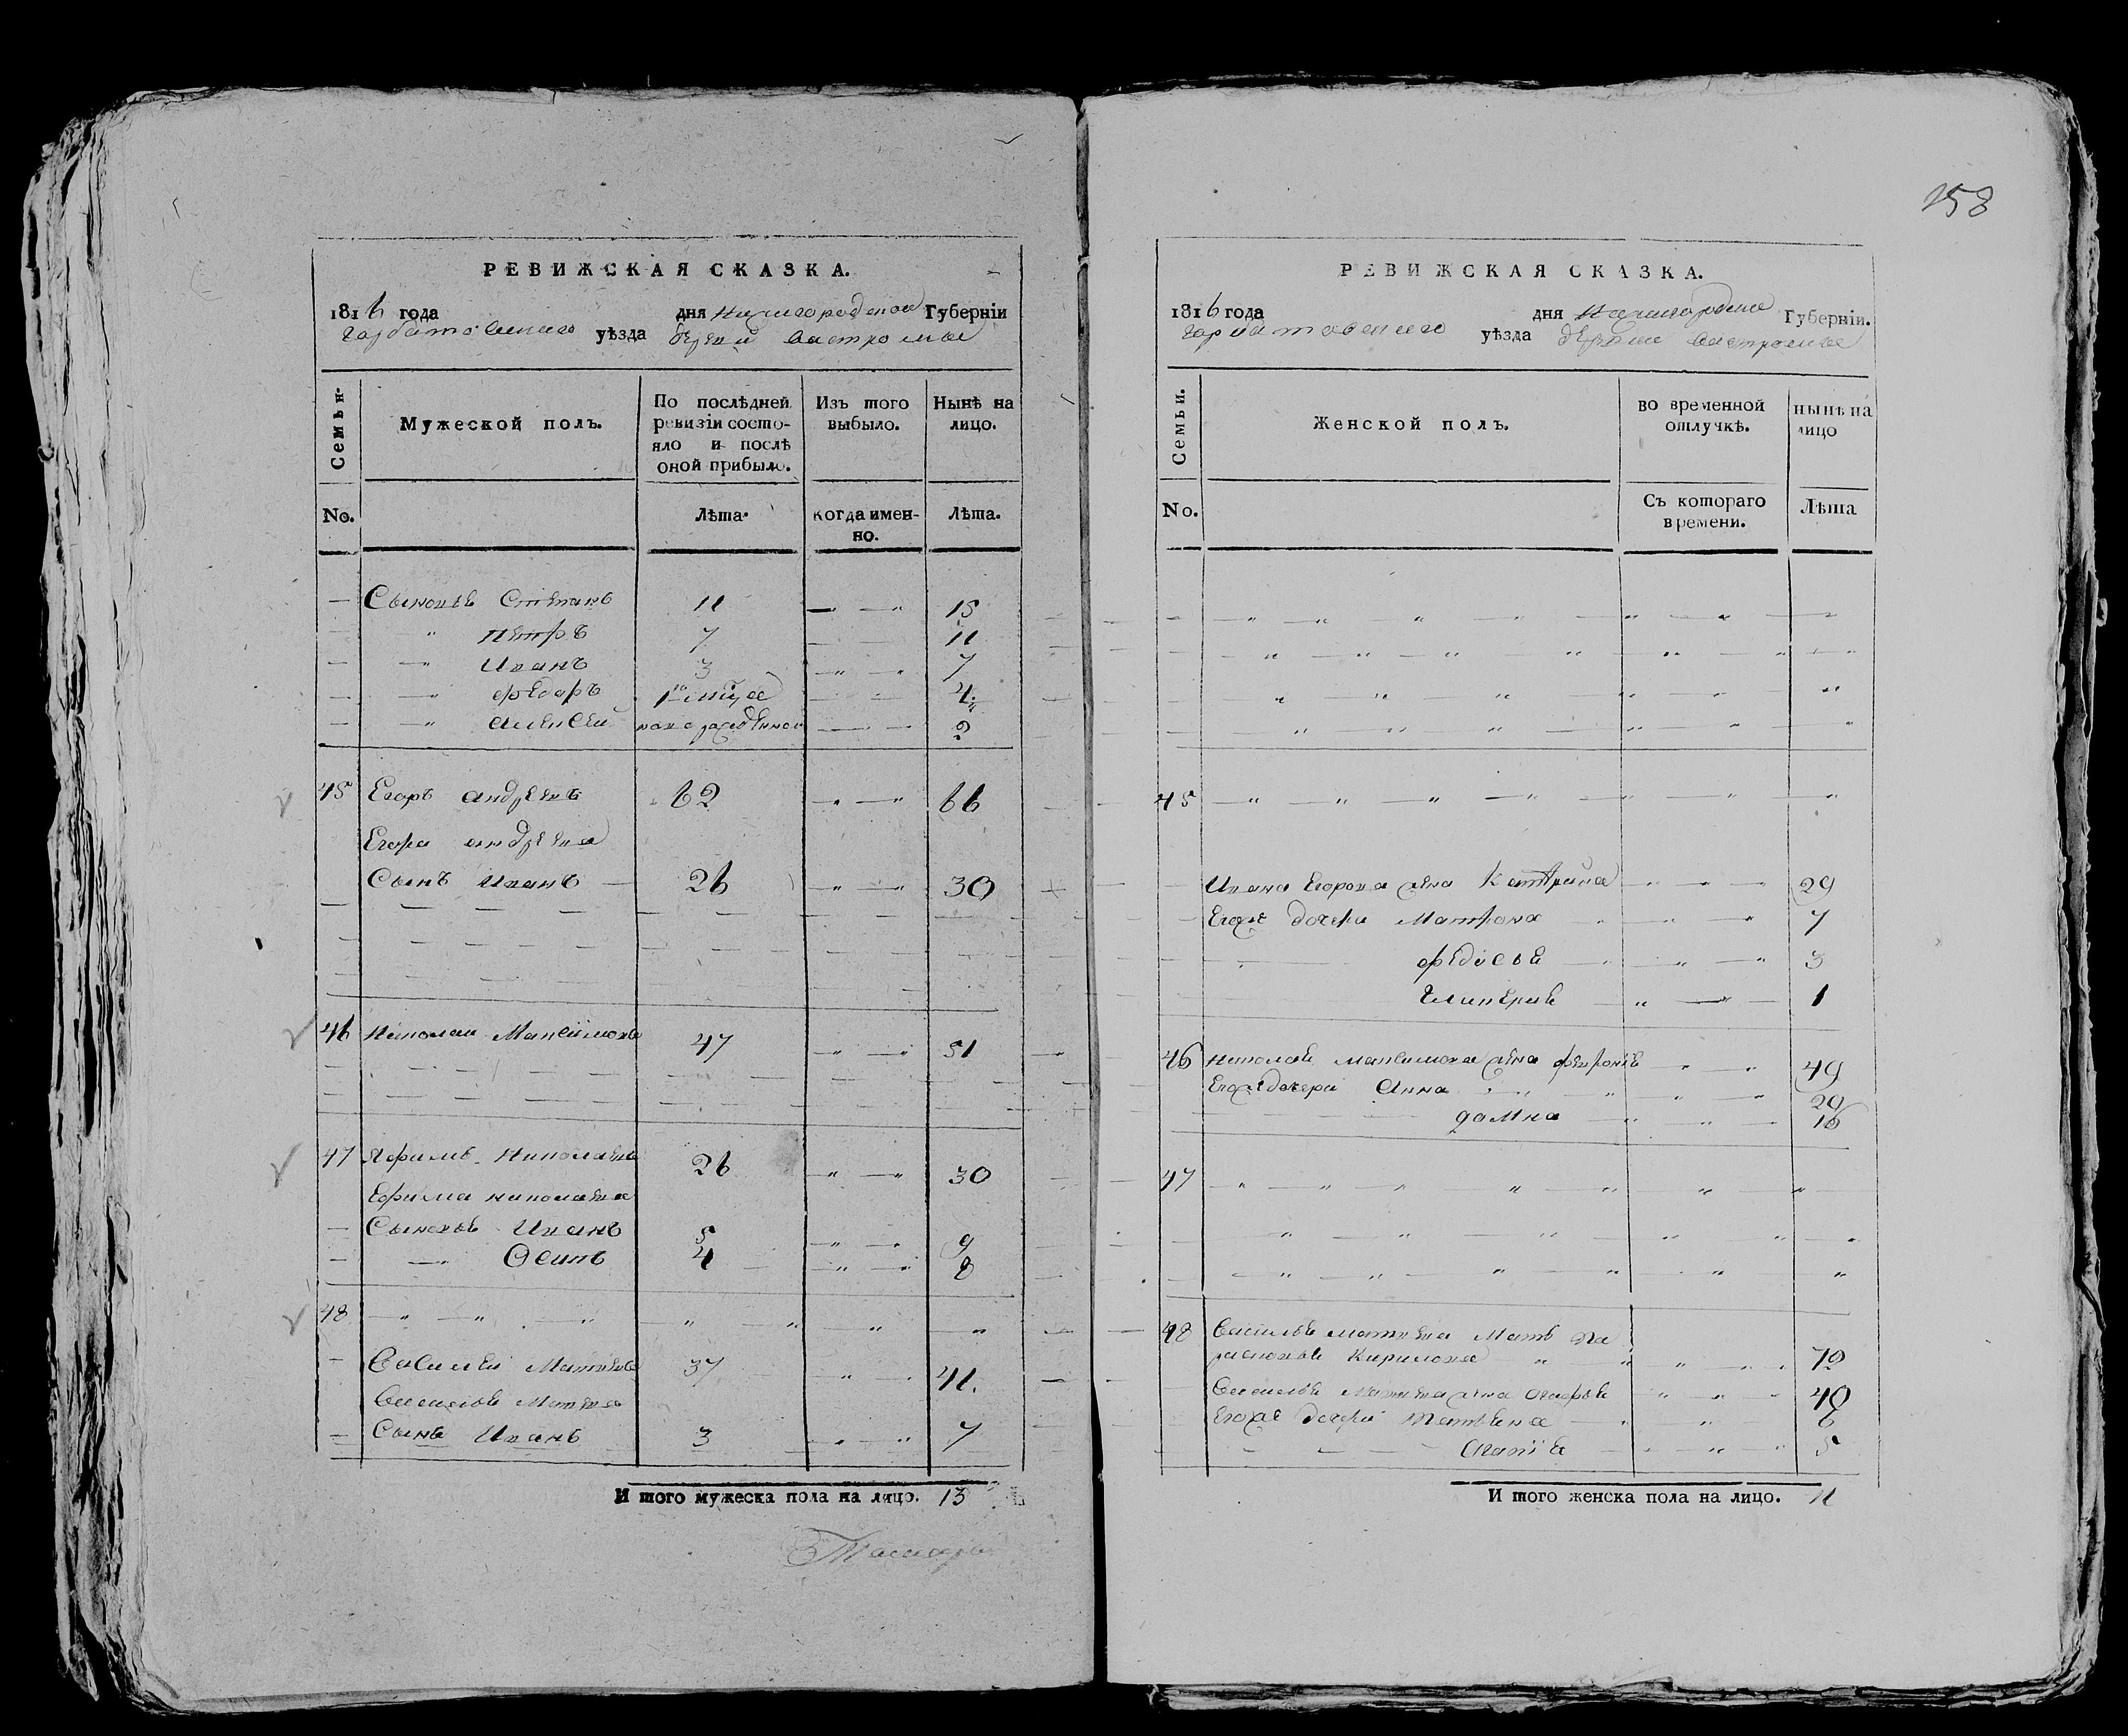 РЕВИЖСКАЯ СКАЗКА.
1816 года дня Нижегородской Губерніи
Горбатовскаго уѣзда деревни
Семьи.
Мужеской полъ.
По послѣдней ревизіи состояло и послѣ оной прибыло.
Изъ того выбыло.
Нынѣ на лицо.
No.
Лѣта.
когда именно.
Лѣта.
Сыновья Степанъ 11 15
Петръ 7 11
Иванъ 3 7
Федоръ 4
Алексей новорожденной 2
45 Егоръ Андреевъ 62 66
Егора Андреева
Сынъ Иванъ 26 30
46 Николай Максимовъ 47 51
47 Яфимъ Николаевъ 26 30
Ефима Николаева
Сыновья Иванъ 5 9
Осипъ 4 8
48
Василей Матвеевъ 37 41.
Василья Матвева
Сынъ Иванъ 3 7
И того мужеска пола на лицо. 13
158
РЕВИЖСКАЯ СКАЗКА.
1816 года дня Губерніи.
уѣзда
Семьи.
Женской полъ.
во временной отлучкѣ.
нынѣ на лицо
No.
Съ котораго времени.
Лѣта
45
Ивана Егорова жена Катерина 29
Егоже дочери Матрона 7
Федосья 3
1
46 Николая Максимова жена 49
Егоже дочери Анна 20
Домна 16
47
48 Василья Матвева Мать Па
расковья Кирилова 70
Василья Матвева жена Агафья 40
Егоже дочери Татьяна 8
5
И того женска пола на лицо. 11